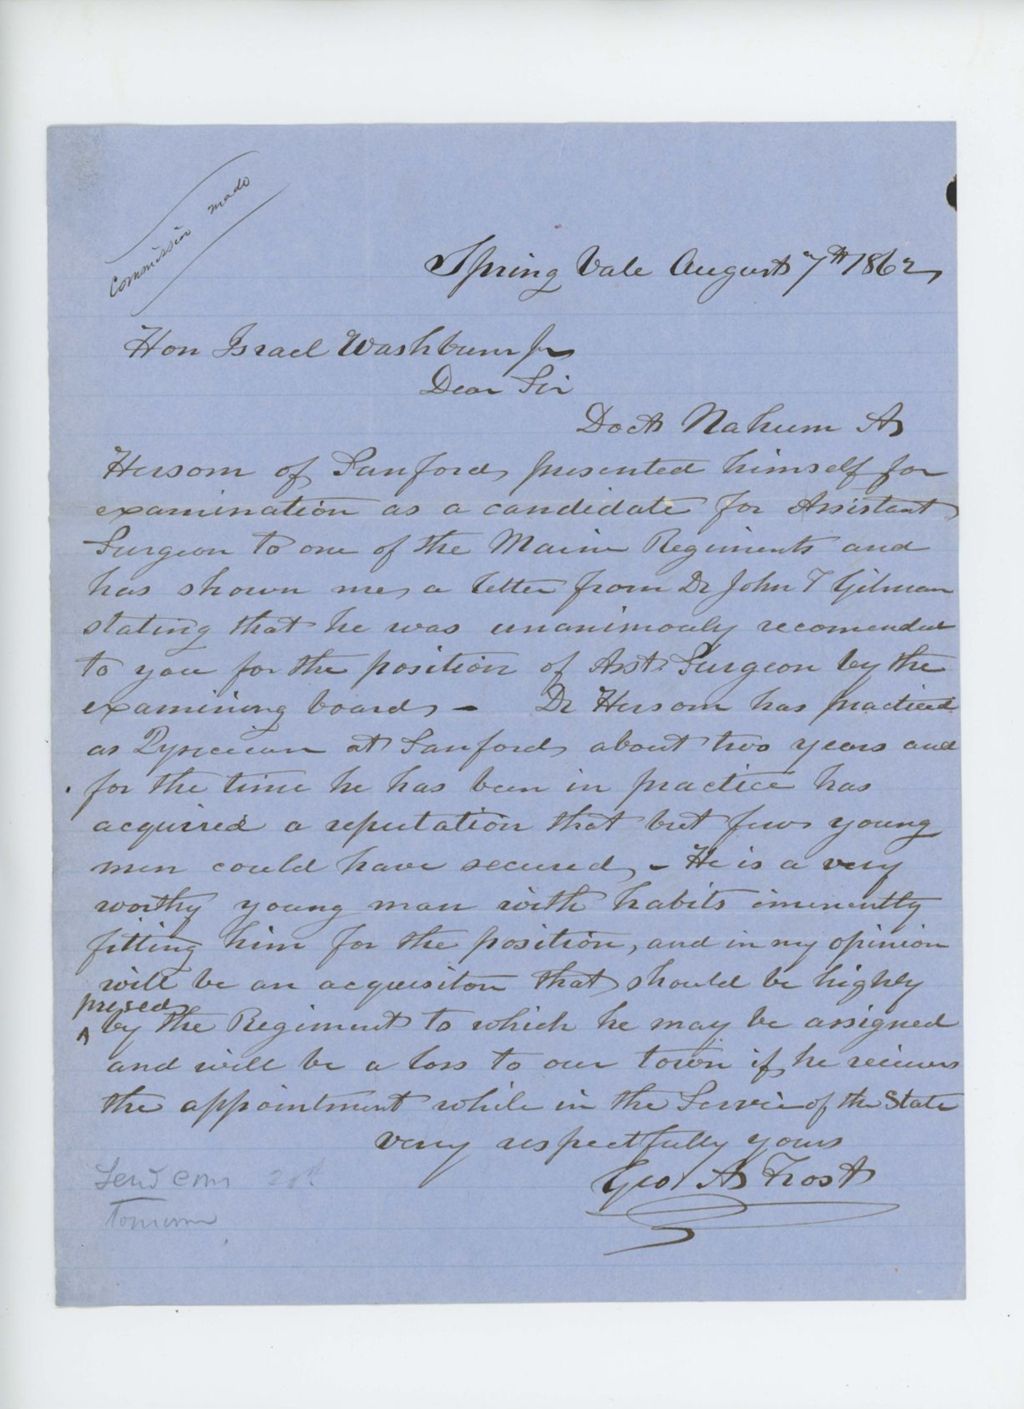 Commission made
Spring Vale August 7th 1862
Hon Israel Washburn Jr
Dear Sir
Doct Nahum A
Hersom of Sanford, presented himself for
examination as a candidate for Assistant
Surgeon to one of the Maine Regiments and
has shown me, a letter from Dr John T Gilman
stating that he was unanimously recomended
to you for the position of Asst Surgeon by the
examining board, - Dr Hersom has practiced
as Pysician at Sanford, about two years and
for the time he has been in practice has
acquired a reputation that but few young
men could have secured, - He is a very
worthy young man with habits eminently
fitting him for the position, and in my opinion
will be an acquisiton that should be highly
prised
^ by the Regiment to which he may be assigned
and will be a loss to our town if he recieves
the appointment while in the Service of the State
very respectfully yours
Geo A Frost
Send com 20th
Tomorrow